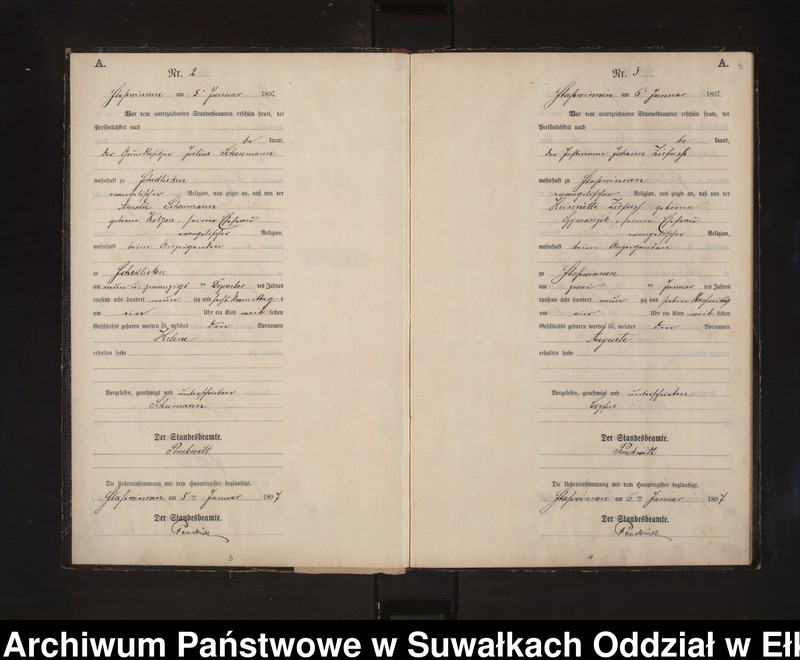 A.
Nr. 2
am 5. Januar 1897
Vor dem unterzeichneten Standesbeamten erschien heute, der
Persönlichkeit nach
be kannt,
der Grundbesitzer Julius Schumann
wohnhaft zu
evangelischer Religion, und zeigte an, daß von der
Amalie Schumann
geborene seiner Ehefrau
evangelischer Religion,
wohnhaft beim Anzeigenden
zu
am neun u. zwanzigs ten Dezember des Jahres
tausend acht hundert neun zig und sechs Vormittag s
um ein Uhr ein Kind weib lichen
Geschlechts geboren worden sei, welches den Vornamen
Helene
erhalten habe
Vorgelesen, genehmigt und unterschrieben
Schumann
Der Standesbeamte.
Die Uebereinstimmung mit dem Hauptregister beglaubigt.
am 5 ten Januar 1897
Der Standesbeamte.
3
A.
Nr. 3
am 6. Januar 1897
Vor dem unterzeichneten Standesbeamten erschien heute, der
Persönlichkeit nach
be kannt,
der Johann
wohnhaft zu
evangelischer Religion, und zeigte an, daß von der
Heinriette geborene
seiner Ehefrau
evangelischer Religion,
wohnhaft beim Anzeigenden
zu
am zwei ten Januar des Jahres
tausend acht hundert neun zig und sieben
um ein Uhr ein Kind weib lichen
Geschlechts geboren worden sei, welches den Vornamen
Auguste
erhalten habe
Vorgelesen, genehmigt und unterschrieben
Der Standesbeamte.
Die Uebereinstimmung mit dem Hauptregister beglaubigt.
am 6 ten Januar 1897
Der Standesbeamte.
4
Archiwum Państwowe w Suwałkach Oddział w Ełk